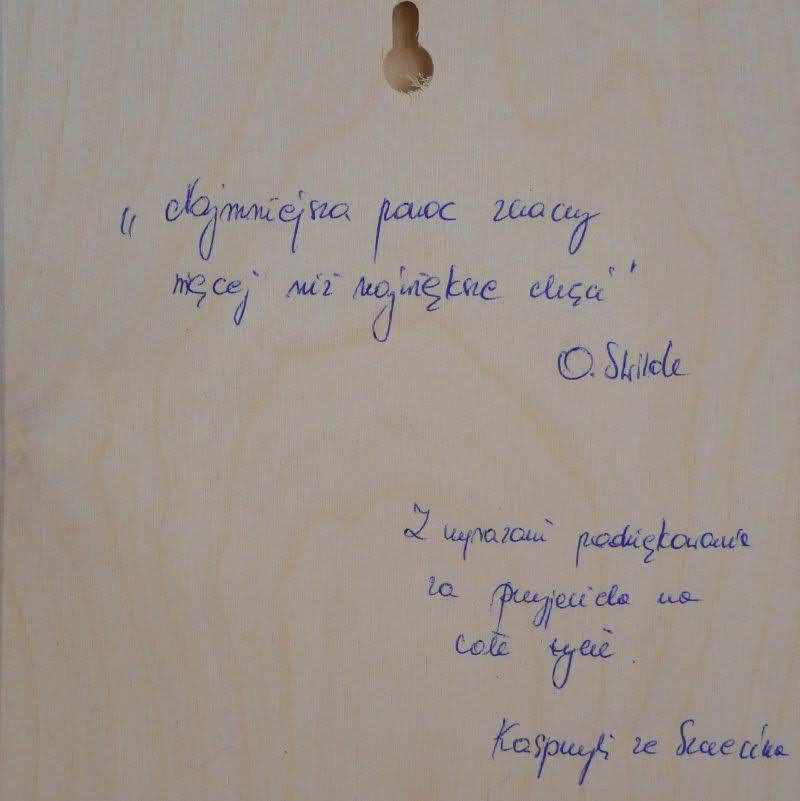 „Najmniejsza pomoc znaczy
więcej niż największe chęci"
O. Wilde
Z wyrazami podziękowania
za przyjaciela na
całe życie.
Kasprzyk ze Szczecina